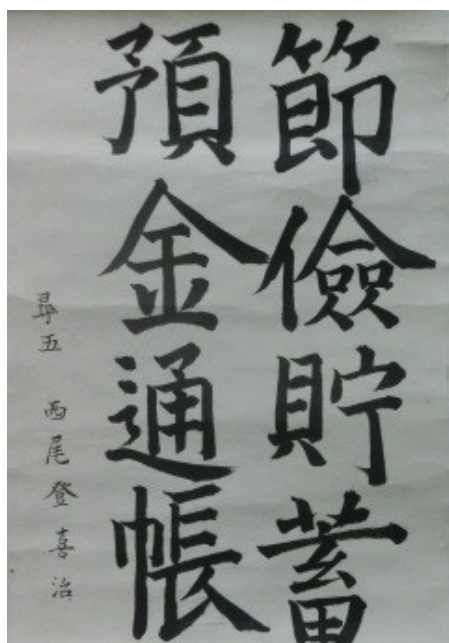 節儉貯蓄
預金通帳
尋五 西尾登喜治